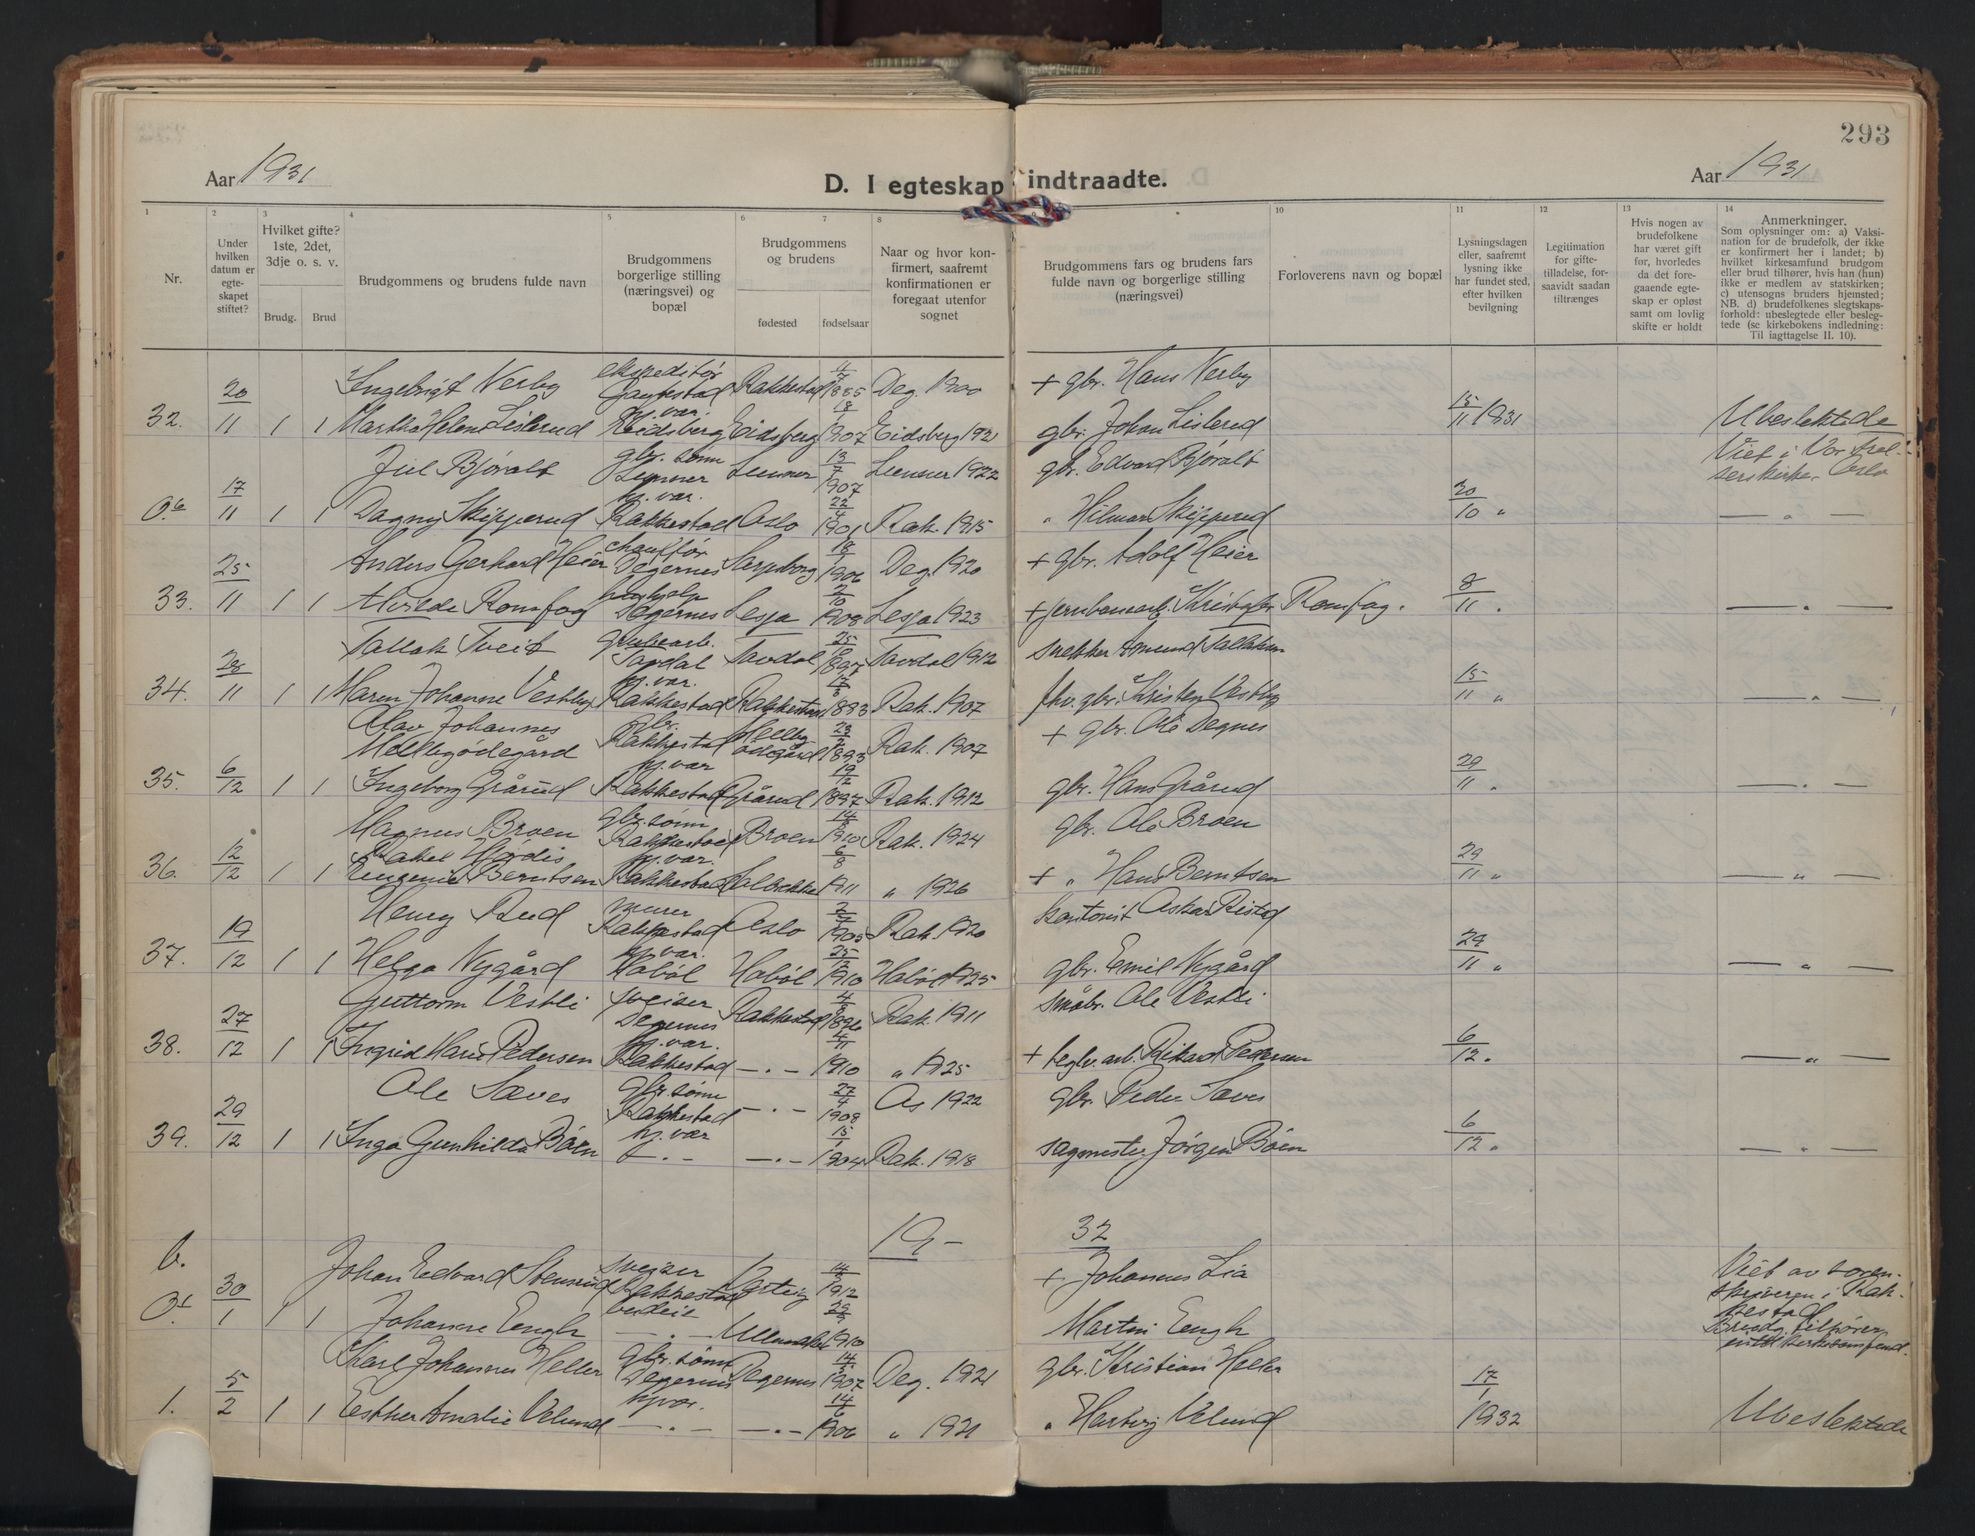 293
Aar 1931
D. I egteskap indtraadte.
Aar 1931
1 2 3 4 5 6 7 8 9 10 11 12 13 14
Nr.
Under hvilken datum er egteskapet stiftet?
Hvilket gifte? 1ste, 2det, 3dje o. s. v.
Brudg. Brud
Brudgommens og brudens fulde navn
Brudgommens borgerlige stilling (næringsvei) og bopæl
Brudgommens og brudens
fødested fødselsaar
Naar og hvor konfirmert, saafremt konfirmationen er foregaat utenfor sognet
Brudgommens fars og brudens fars fulde navn og borgerlige stilling (næringsvei)
Forloverens navn og bopæl
Lysningsdagen eller, saafremt lysning ikke har fundet sted, efter hvilken bevilgning
Legitimation for giftetilladelse, forsaavidt saadan tiltrænges
Hvis nogen av brudefolkene har været gift før, hvorledes da det foregaaende egteskap er opløst samt om lovlig skifte er holdt
Anmerkninger.
Som oplysninger om: a) Vaksination for de brudefolk, der ikke er konfirmert her i landet; b) hvilket kirkesamfund brudgom eller brud tilhører, hvis han (hun) ikke er medlem av statskirken; c) utensogns bruders hjemsted; NB. d) brudefolkenes slegtskapsforhold: ubeslegtede eller beslegtede (se kirkebokens indledning: Til iagttagelse II. 10).
20 Ingebrigt Nerby ekspeditør Rakkestad 1885 Deg. 1900 + gbr. Hans Nerby
32. 11 1 1 Martha Helene Lislerud hj.var. Eidsberg Eidsberg 18/1 1907 Eidsberg 1921 gbr. Johan Lislerud 15/11 1931 Ubeslektede
Juel Bjøralt gbr. sønn 13/7 1907 1922 gbr. Edvard Bjøralt Viet i Vor Frelserskirke Oslo
17/11 1 1 Dagny Skipperud hj.var. Rakkestad Oslo 22/4 1901 Rak. 1915 " Hilmar Skipperud 20/10 " — " —
25 Anders Gerhard Heier chauffør Degernes Sarpsborg 1906 Deg. 1920 + gbr. Adolf Heier
33. 11 1 1 Romsfog Degernes Lesja 2/10 1908 Lesja 1923 + jernbanearb. Kristofer Romsfog. 8/11 " — " —
28 Tallak Tveit grubearb. 25 1912 snekker Amund Tallaksen
34. 11 1 1 Maren Johanne Vestby hj.var. Rakkestad Rakkestad 1893 Rak. 1907 fhv. gbr. Vestby 15/11 " — " —
Olav Johannes Mellbyødegård gbr. Rakkestad Mellby ødegård 1893 Rak. 1907 + gbr. Ole Degnes
35. 6/12 1 1 Ingeborg Grårud hj.var Rakkestad Grårud 19/12 1897 Rak. 1912 gbr. Hans Grårud 29/11 " — " —
Magnus Broen gbr. sønn Rakkestad Broen 1910 Rak. 1924 gbr. Ole Broen
36. 12/12 1 1 Rakel Hjørdis Eugenie Berntsen hj.var. Rakkestad 6/8 1911 " 1926 + " Hans Berntsen 29/11 " — " —
Henry Rud murer Rakkestad Oslo 1905 Rak. 1920 kontorist
37. 19/12 1 1 Helga Nygård hj.var. Hobøl Hobøl 25 1910 Hobøl 1925 gbr. Emil Nygård 29/11 " — " —
Guttorm Vestli sveiser Degernes Rakkestad 1896 Rak. 1911 småbr. Ole Vestli
38. 27/12 1 1 Ingrid Marie Pedersen hj.var. Rakkestad — " — 1910 " 1925 + teglv. arb. Rikard Pedersen 6/12 " — " —
Ole Sæves gbr. sønn Rakkestad — " — 27/4 1908 Os 1922 gbr. Peder Sæves
39. 29/12 1 1 Inga Gunhilda Böen hj.var — " — — " — 15/1 1904 Rak. 1918 sagmester Jørgen Böen 6/12 " — " —
19— 32
Johan Edvard Stensrud sveiser Rakkestad Varteig 1912 + Johannes Lia Viet av sorenskriveren i Rakkestad
30/1 1 1 Johanne Eengh budeie — " — 1910 Martin Eengh Brudg. tilhører intet kirkesamfund.
Karl Johannes Heller gbr. sønn Degernes Degernes 14 1907 Deg. 1921 gbr. Kristian Heller
1. 5/2 1 1 Esther Amalie Velund hj.var. — " — — " — 14/6 1906 " 1921 " Hartvig Velund 17/1 1932 Ubeslektede